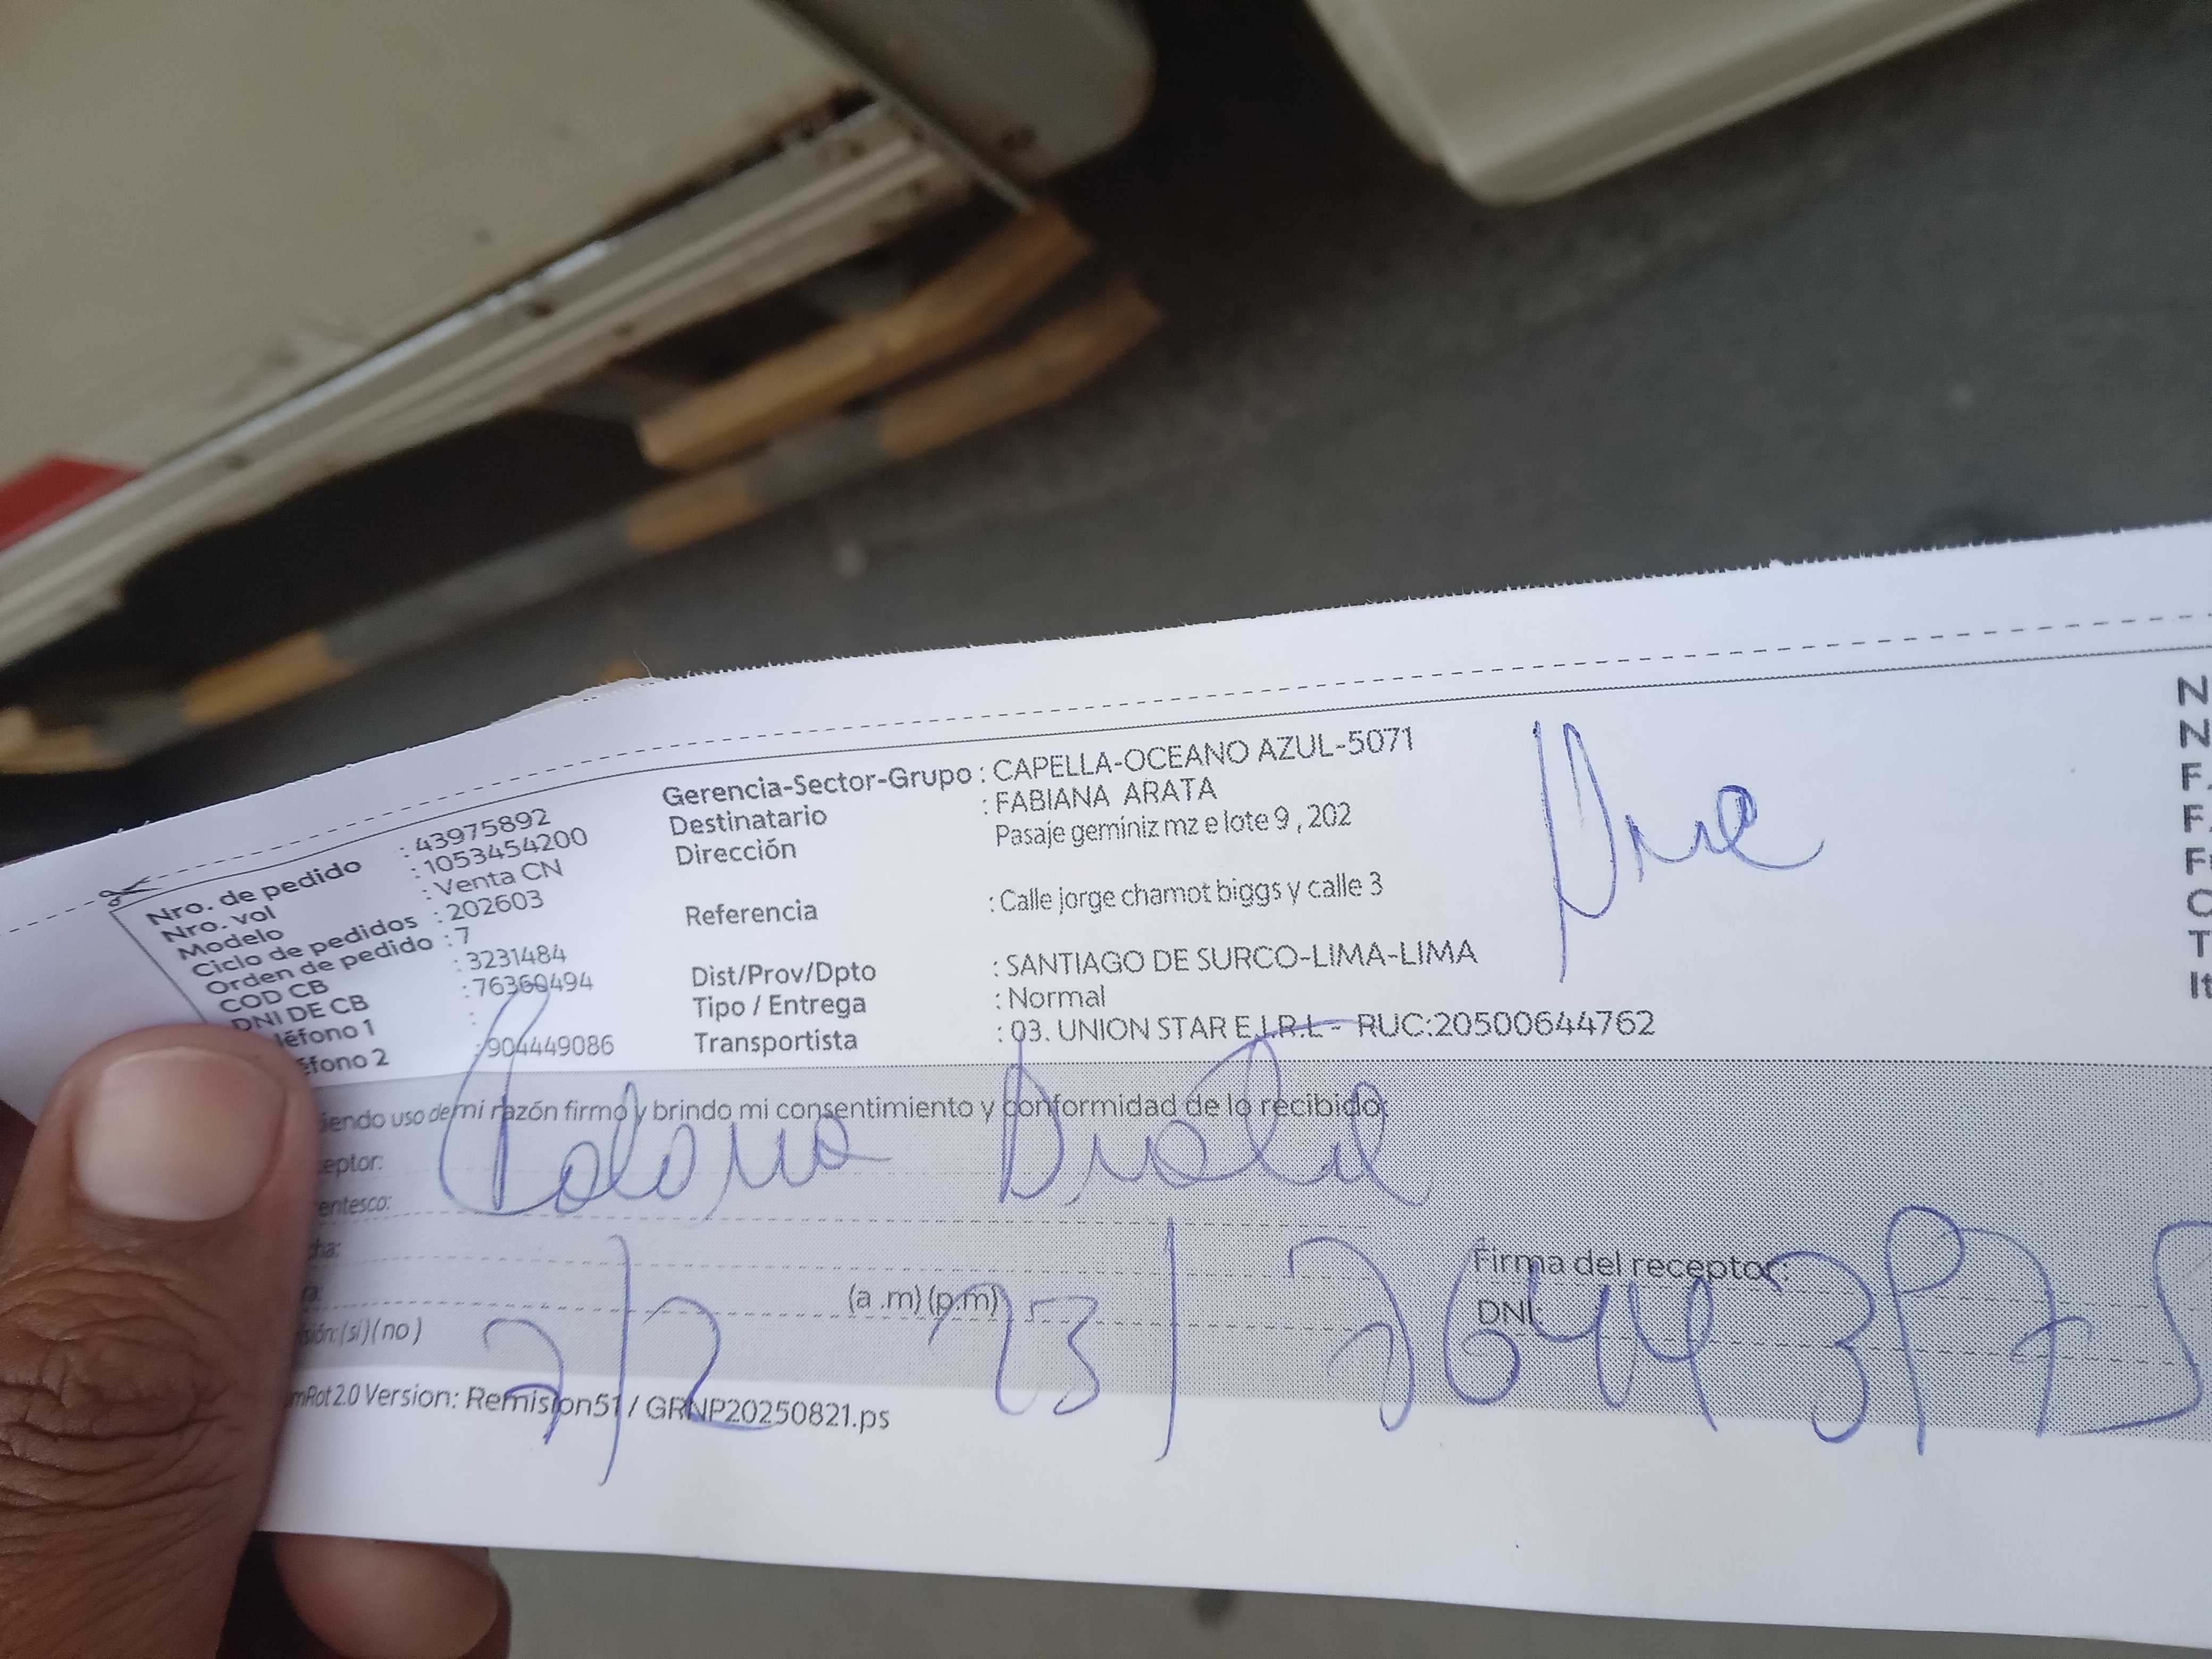 Nro. de pedido : 43975892
Nro. vol : 1053454200
Modelo : Venta CN
Ciclo de pedidos : 202603
Orden de pedido : 7
COD CB : 3231484
DNI DE CB : 76360494
léfono 1 :
éfono 2 : 904449086
Gerencia-Sector-Grupo : CAPELLA-OCEANO AZUL-5071
Destinatario : FABIANA ARATA
Dirección Pasaje geminiz mz e lote 9 , 202
Referencia : Calle jorge chamot biggs y calle 3
Dist/Prov/Dpto : SANTIAGO DE SURCO-LIMA-LIMA
Tipo / Entrega : Normal
Transportista : 03. UNION STAR E.I.R.L - RUC:20500644762
N
N
F.
F
F
O
T
It
iendo uso de mi razón firmo y brindo mi consentimiento y conformidad de lo recibido:
eptor: Paloma
entesco:
cha:
(a .m) (p.m)
isión: (si) ( no )
Firma del receptor:
DNI:
mRot 2.0 Version: Remision51 / GRNP20250821.ps